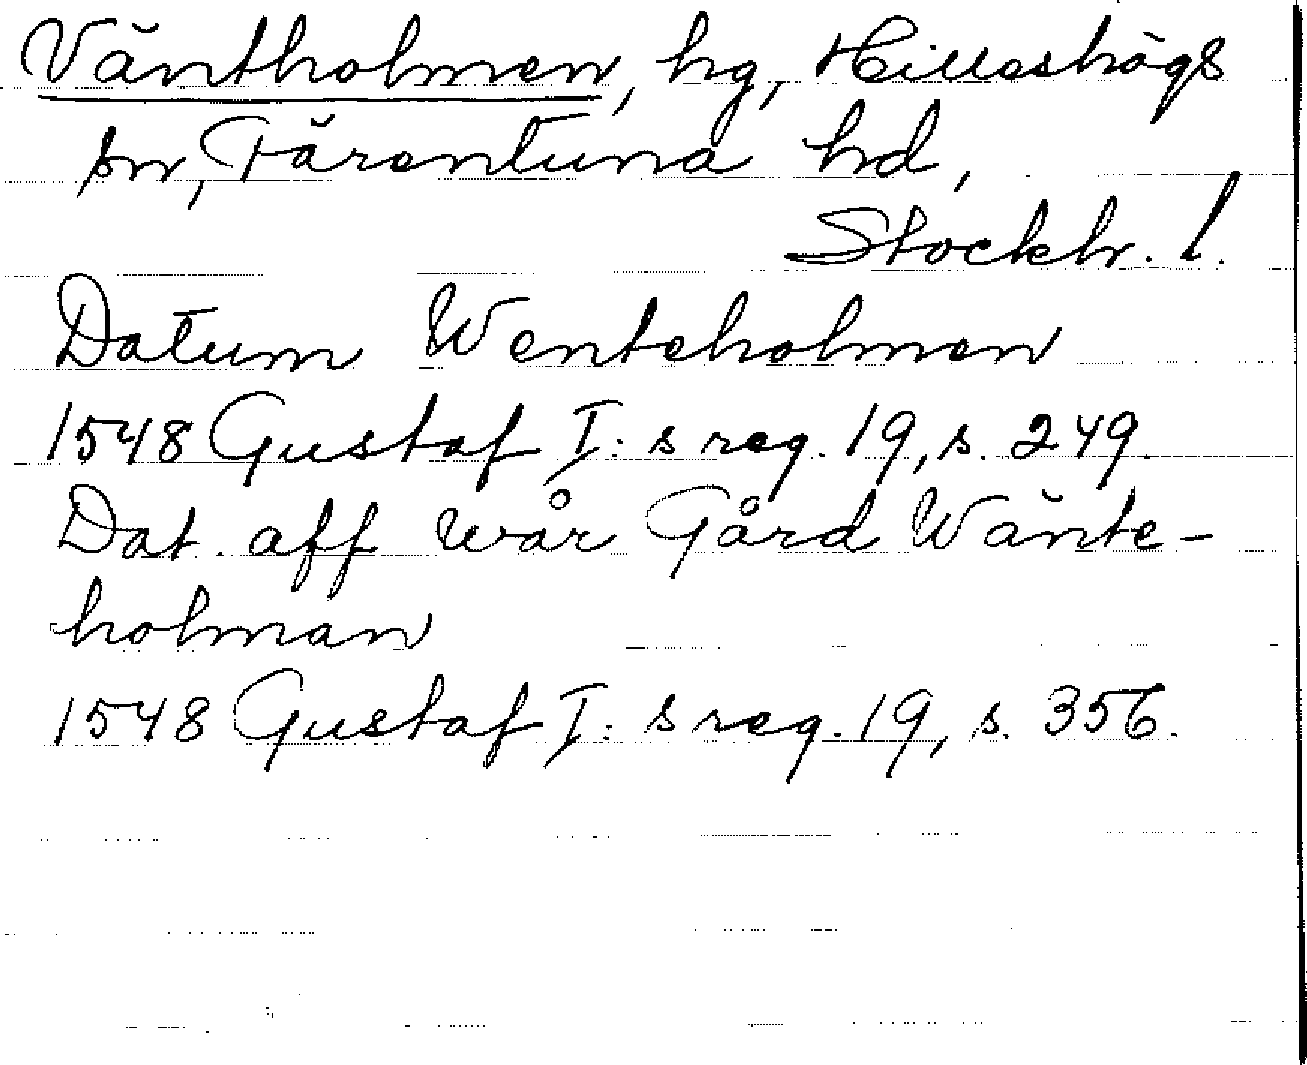 Väntholmen, hg, Hilleshögs
sn, Färentuna hd,
Stockh. l.
Datum Wenteholmen
1548 Gustaf I:s reg. 19, s. 249.
Dat. aff wår Gård Wänte-
holman
1548 Gustaf I:s reg. 19, s. 356.